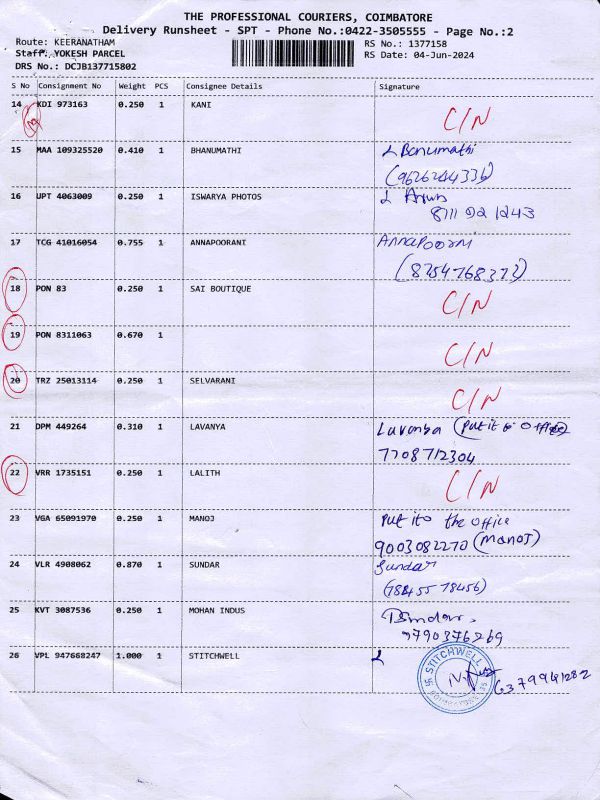 THE PROFESSIONAL COURIERS, COIMBATORE
Delivery Runsheet - SPT - Phone No.:0422-3505555 - Page No.:2
Route: KEERANATHAM RS No.: 1377158
Staff: YOKESH PARCEL RS Date: 04-Jun-2024
DRS No.: DCJB137715802
S No Consignment No Weight PCS Consignee Details Signature
14 KDI 973163 0.250 1 KANI C/N
15 MAA 109325520 0.410 1 BHANUMATHI Banumathi
(9626244336)
16 UPT 4063009 0.250 1 ISWARYA PHOTOS Arun
8711 02 1243
17 TCG 41016054 0.755 1 ANNAPOORANI Annapoorni
(8754768372)
18 PON 83 0.250 1 SAI BOUTIQUE C/N
19 PON 8311063 0.670 1 C/N
20 TRZ 25013114 0.250 1 SELVARANI C/N
21 DPM 449264 0.310 1 LAVANYA Lavanya (Put it to Office
7708712304
22 VRR 1735151 0.250 1 LALITH C/N
23 VGA 65091970 0.250 1 MANOJ Put ito the office
9003082270 (Manoj)
24 VLR 4908062 0.870 1 SUNDAR Sundar
(78455 78456)
25 KVT 3087536 0.250 1 MOHAN INDUS
9790376269
26 VPL 947668247 1.000 1 STITCHWELL STITCHWELL
6379941282